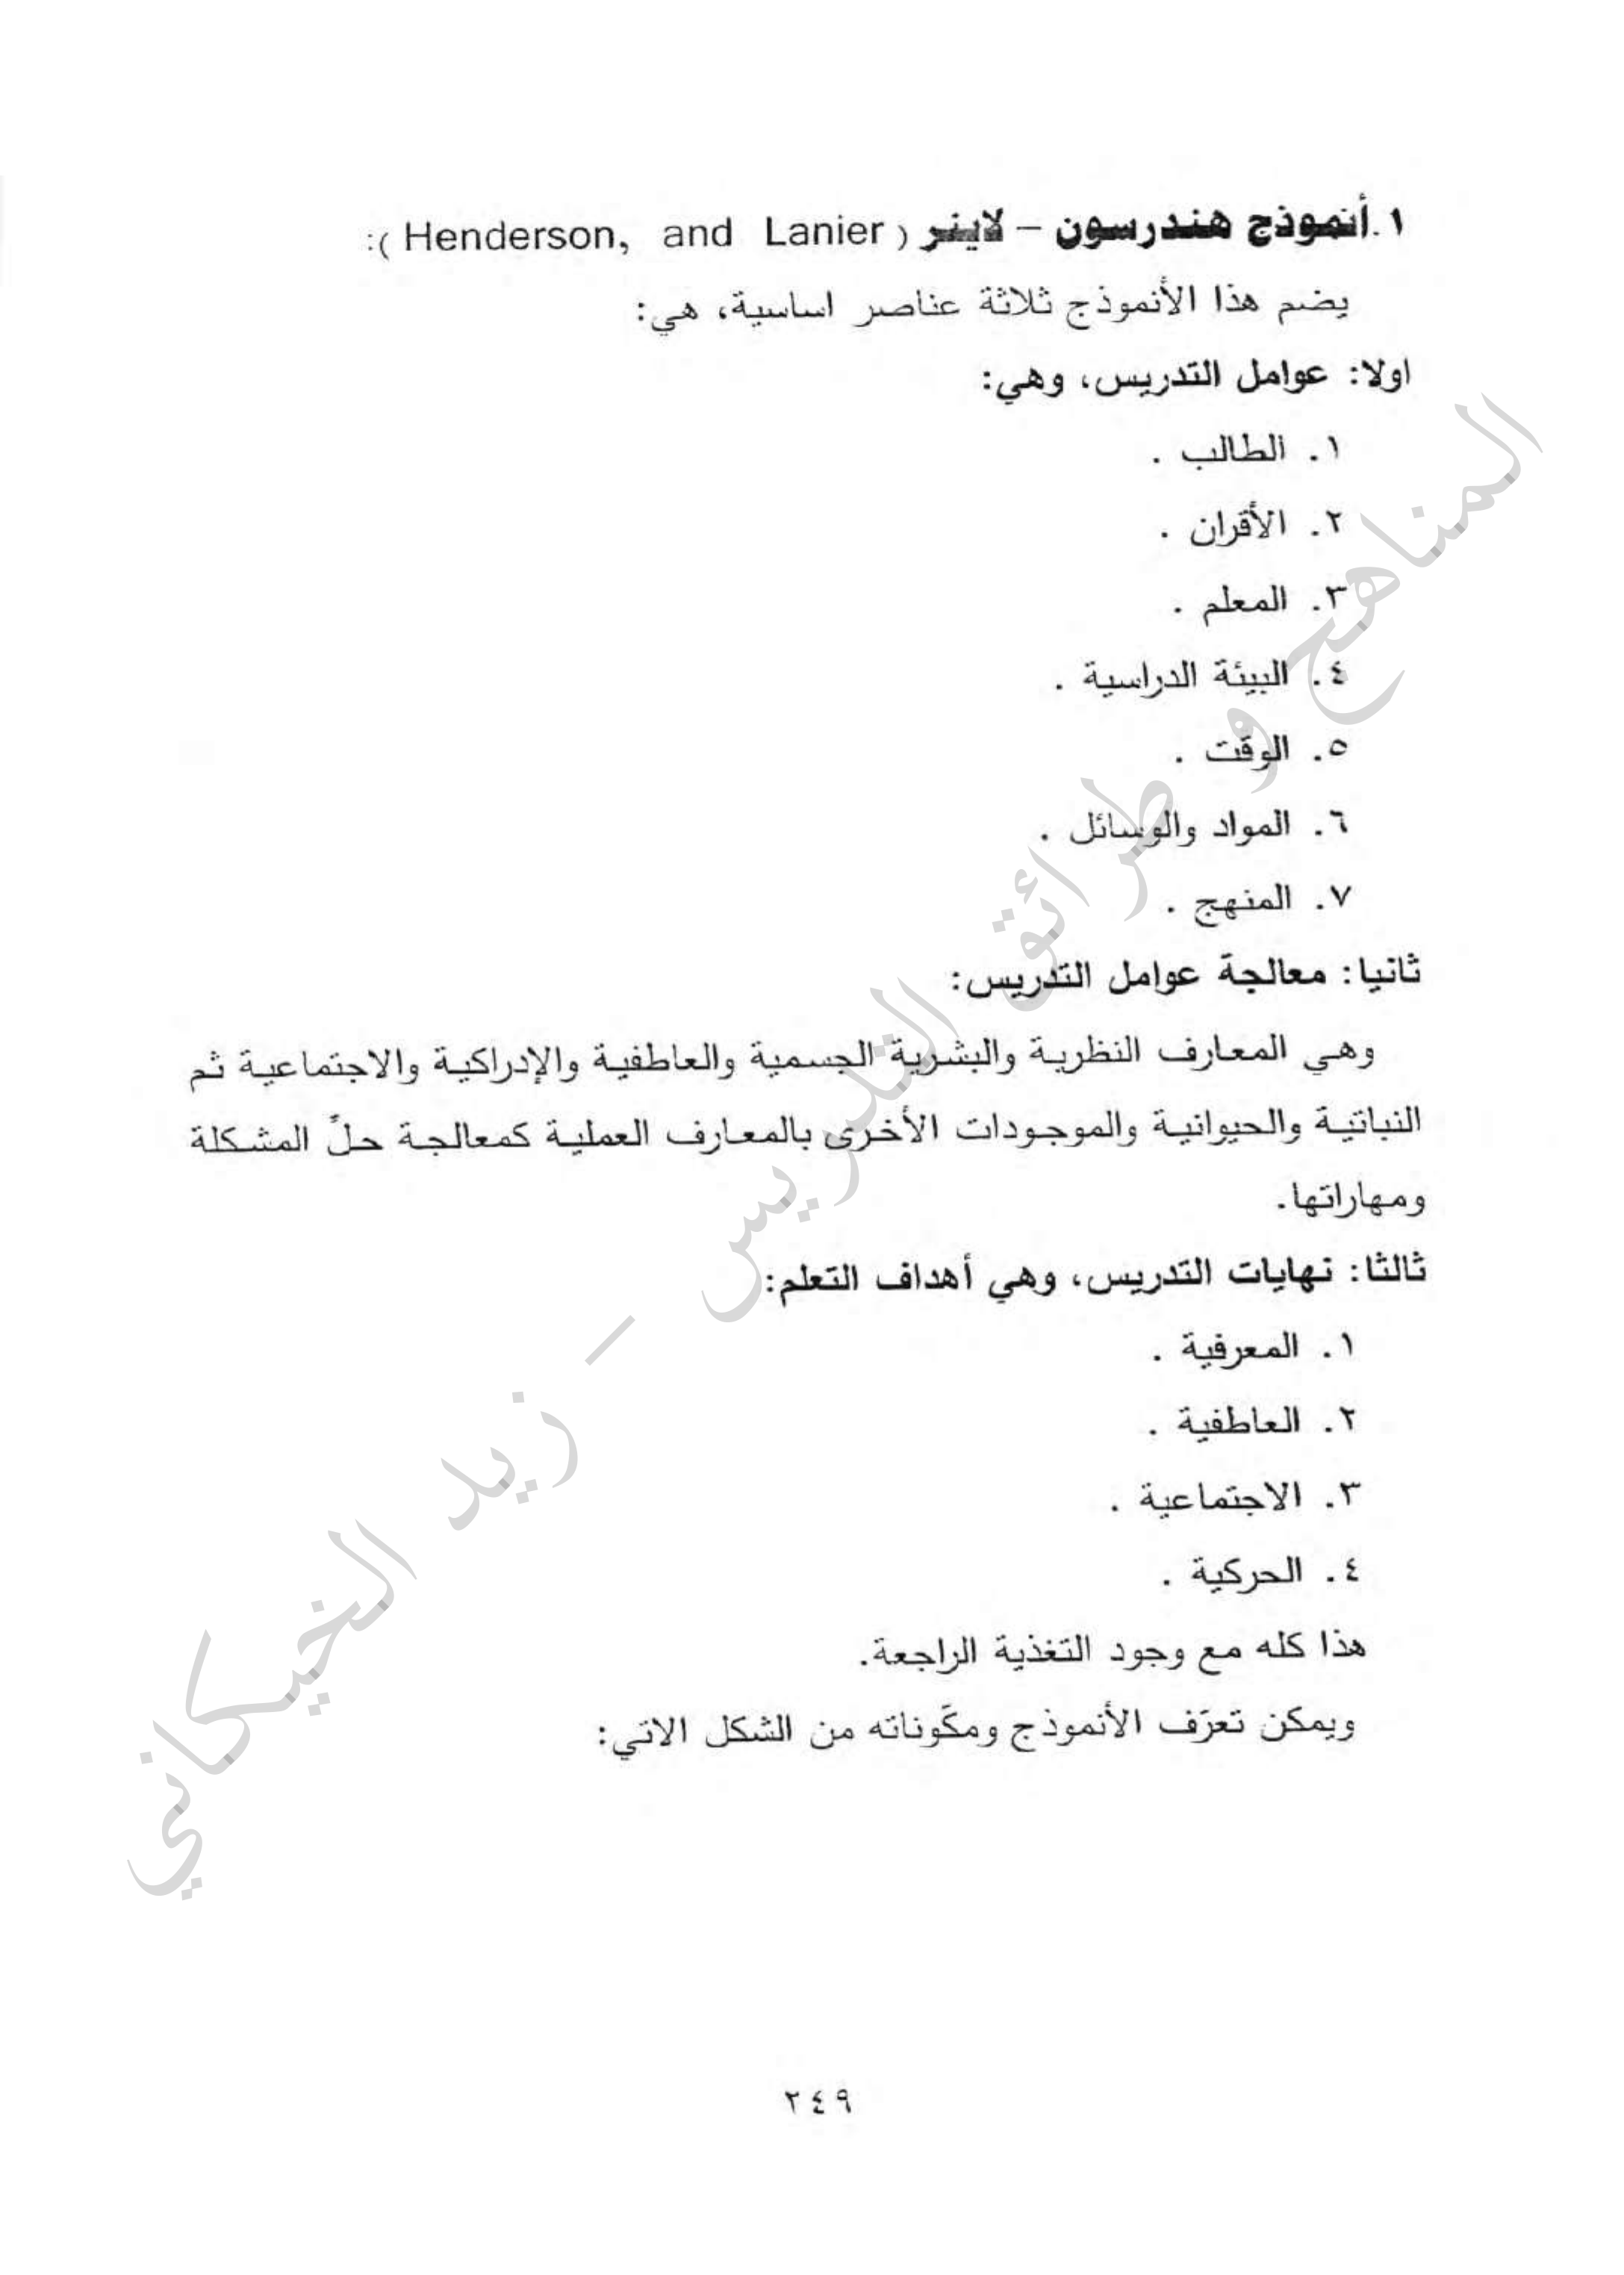 ١.أنموذج هندرسون – لاينر ( Henderson, and Lanier ):
يضم هذا الأنموذج ثلاثة عناصر اساسية، هي:
اولا: عوامل التدريس، وهي:
١. الطالب .
٢. الأقران .
٣. المعلم .
٤. البيئة الدراسية .
٥. الوقت .
٦. المواد والوسائل .
٧. المنهج .
ثانيا: معالجة عوامل التدريس:
وهي المعارف النظرية والبشرية الجسمية والعاطفية والإدراكية والاجتماعية ثم
النباتية والحيوانية والموجودات الأخرى بالمعارف العملية كمعالجة حلّ المشكلة
ومهاراتها.
ثالثا: نهايات التدريس، وهي أهداف التعلم:
١. المعرفية .
٢. العاطفية .
٣. الاجتماعية .
٤. الحركية .
هذا كله مع وجود التغذية الراجعة.
ويمكن تعرّف الأنموذج ومكّوناته من الشكل الاتي:
٢٤٩
المناهج و طرائق التدريس – زيد الخيكاني